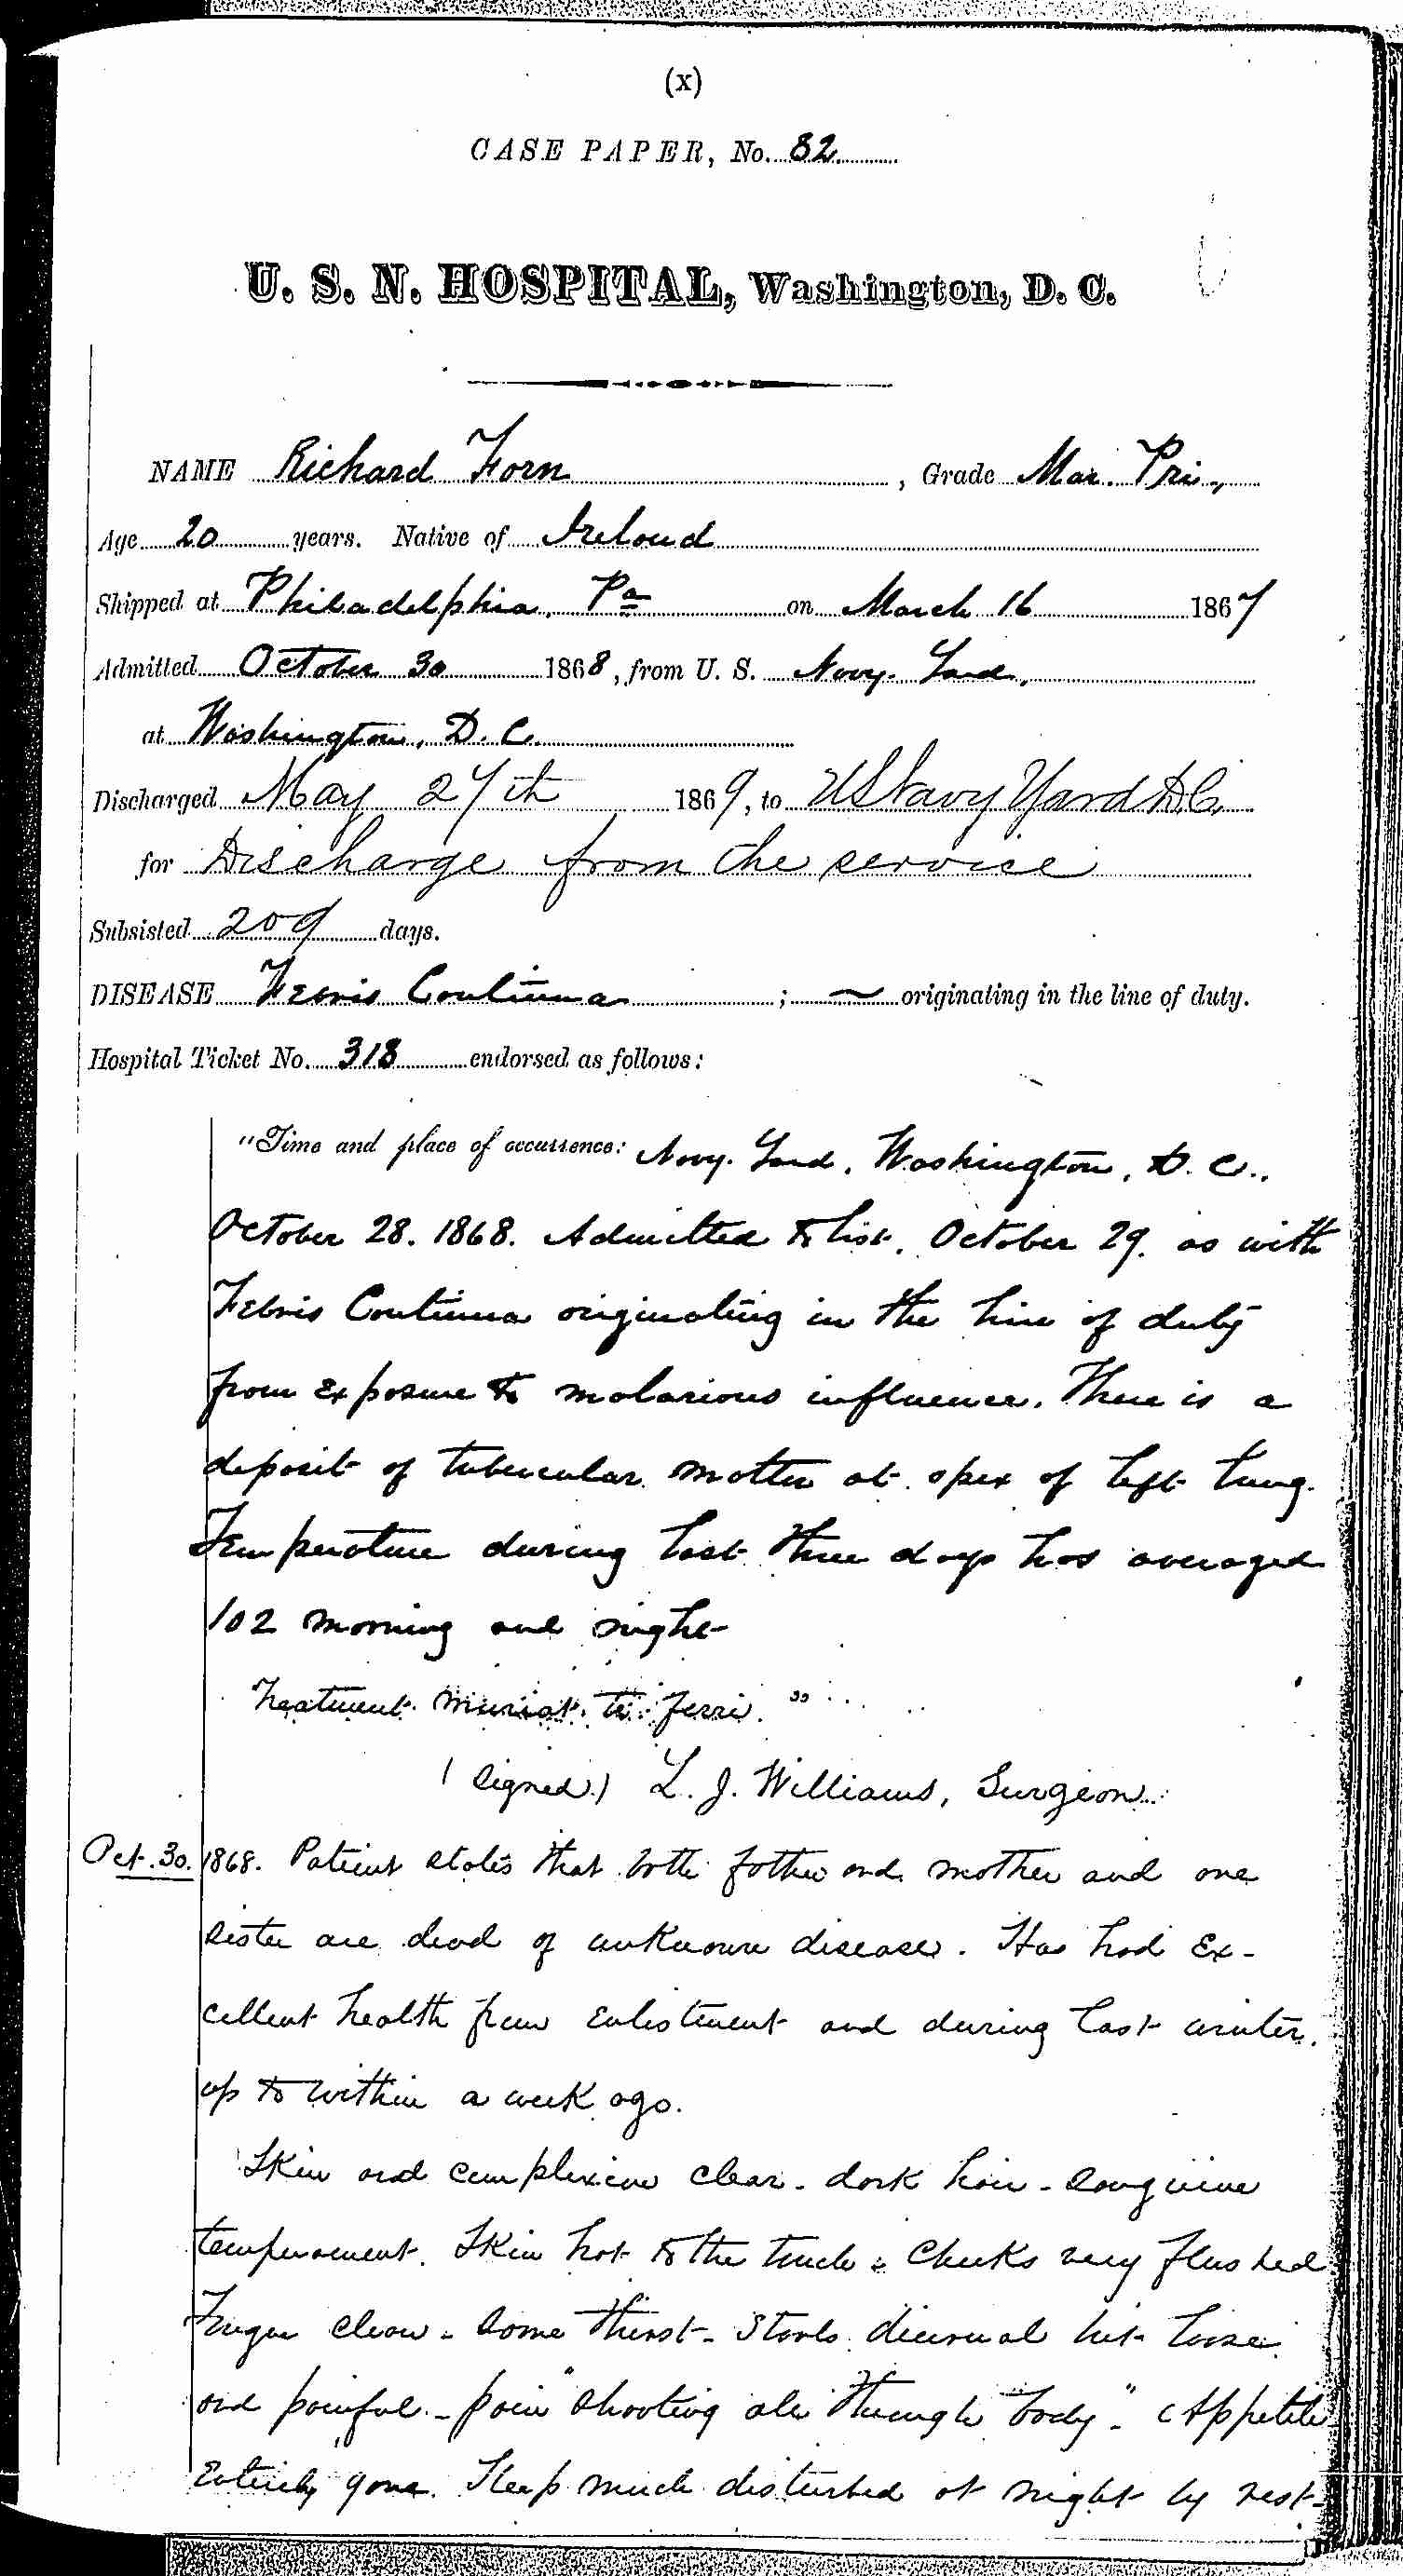 (x)
CASE PAPER, No. 82
U. S. N. HOSPITAL, Washington, D. C.
NAME Richard Forn, Grade Mar. Pri.,
Age 20 years. Native of Ireland
Shipped at Philadelphia, Pa on March 16 1867
Admitted October 30 1868, from U. S. Navy Yard,
at Washington, D. C.
Discharged May 27th 1869, to US Navy Yard D.C.
for Discharge from the service
Subsisted 209 days.
DISEASE Febris Continua ; ~ originating in the line of duty.
Hospital Ticket No. 318 endorsed as follows:
"Time and place of occurrence: Navy Yard, Washington, D. C.,
October 28. 1868. Admitted to list. October 29. as with
Febris Continua originating in the line of duty
from exposure to malarious influence. There is a
deposit of tubercular matter at apex of left lung.
Temperature during last three days has averaged
102 morning and night
Treatment. Muriat. tr. ferri. "
(signed) L. J. Williams, Surgeon.
Oct. 30. 1868. Patient states that both father and mother and one
sister are dead of unknown disease. Has had ex-
cellent health from enlistment and during last winter.
up to within a week ago.
Skin and complexion clear - dark hair - sanguine
temperament. Skin hot to the touch & cheeks very flushed
Tongue clean - some thirst - stools diurnal but loose
and painful - pain "shooting all through body". Appetite
entirely gone. Sleep much disturbed at night by rest-